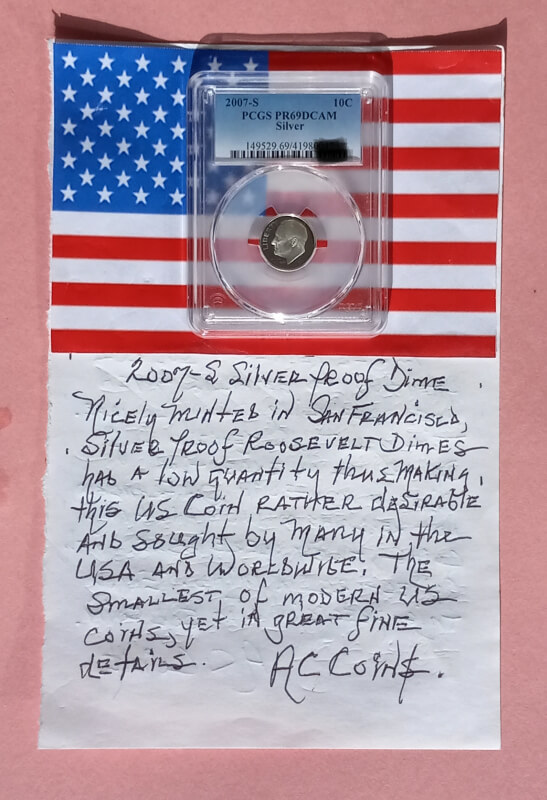 2007-S 10C
PCGS PR69DCAM
Silver
149529.69/4198
2007-S Silver Proof Dime
Nicely minted in San Francisco,
Silver Proof Roosevelt Dimes
has a low quantity thus making
this US Coin rather desirable
and sought by many in the
USA and worldwide. The
smallest of modern US
coins, yet in great fine
details. AC Coin$.